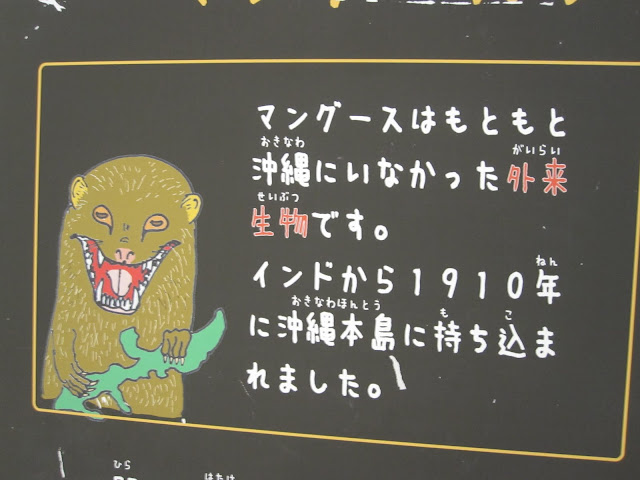 マングースはもともと
おきなわ がいらい
沖縄にいなかった外来
せいぶつ
生物です。
ねん
インドから1910年
おきなわほんとう も こ
に沖縄本島に持ち込ま
れました。
ひら はたけ